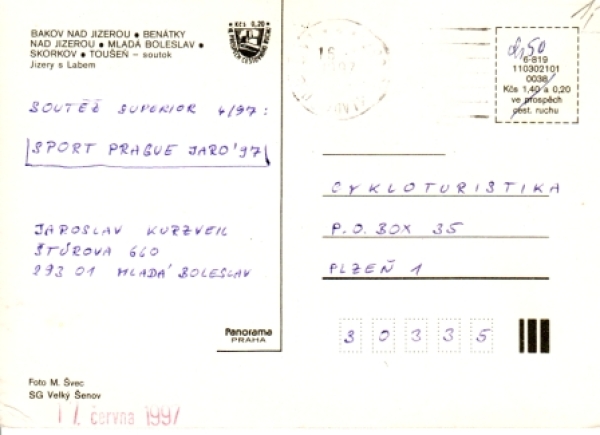 BAKOV NAD JIZEROU ● BENÁTKY
NAD JIZEROU ● MLADÁ BOLESLAV ●
SKORKOV ● TOUŠEŇ – soutok
Jizery s Labem
Kčs 0,20
SOUTĚŽ SUPERIOR 4/97:
SPORT PRAGUE JARO'97
JAROSLAV KURZVEIL
ŠTÚROVA 660
293 01 MLADÁ BOLESLAV
Panorama
PRAHA
Foto M. Švec
SG Velký Šenov
17. června 1997
6-819
110302101
0038
Kčs 1,40 a 0,20
ve prospěch
cest. ruchu
CYKLOTURISTIKA
P.O. BOX 35
PLZEŇ 1
30335